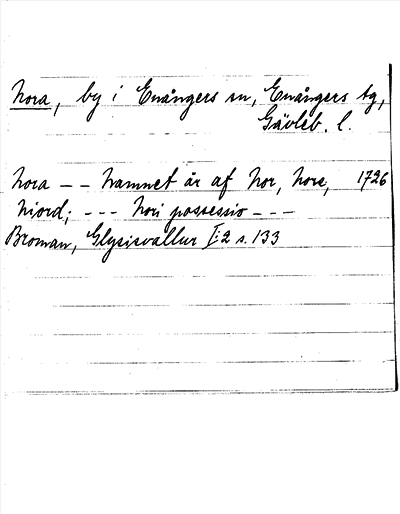 Nora, by i Enångers sn, Enångers tg,
Gävleb. l.
Nora -- Namnet är af Nor, Nore, 1726
Niord; --- Nori possessio ---
Broman, Glysisvallur I:2 s. 133